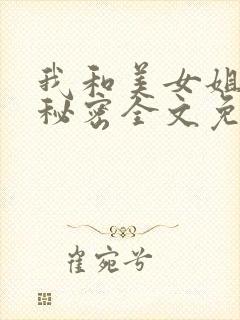 我和美女姐
秘密全文免
崔宛兮